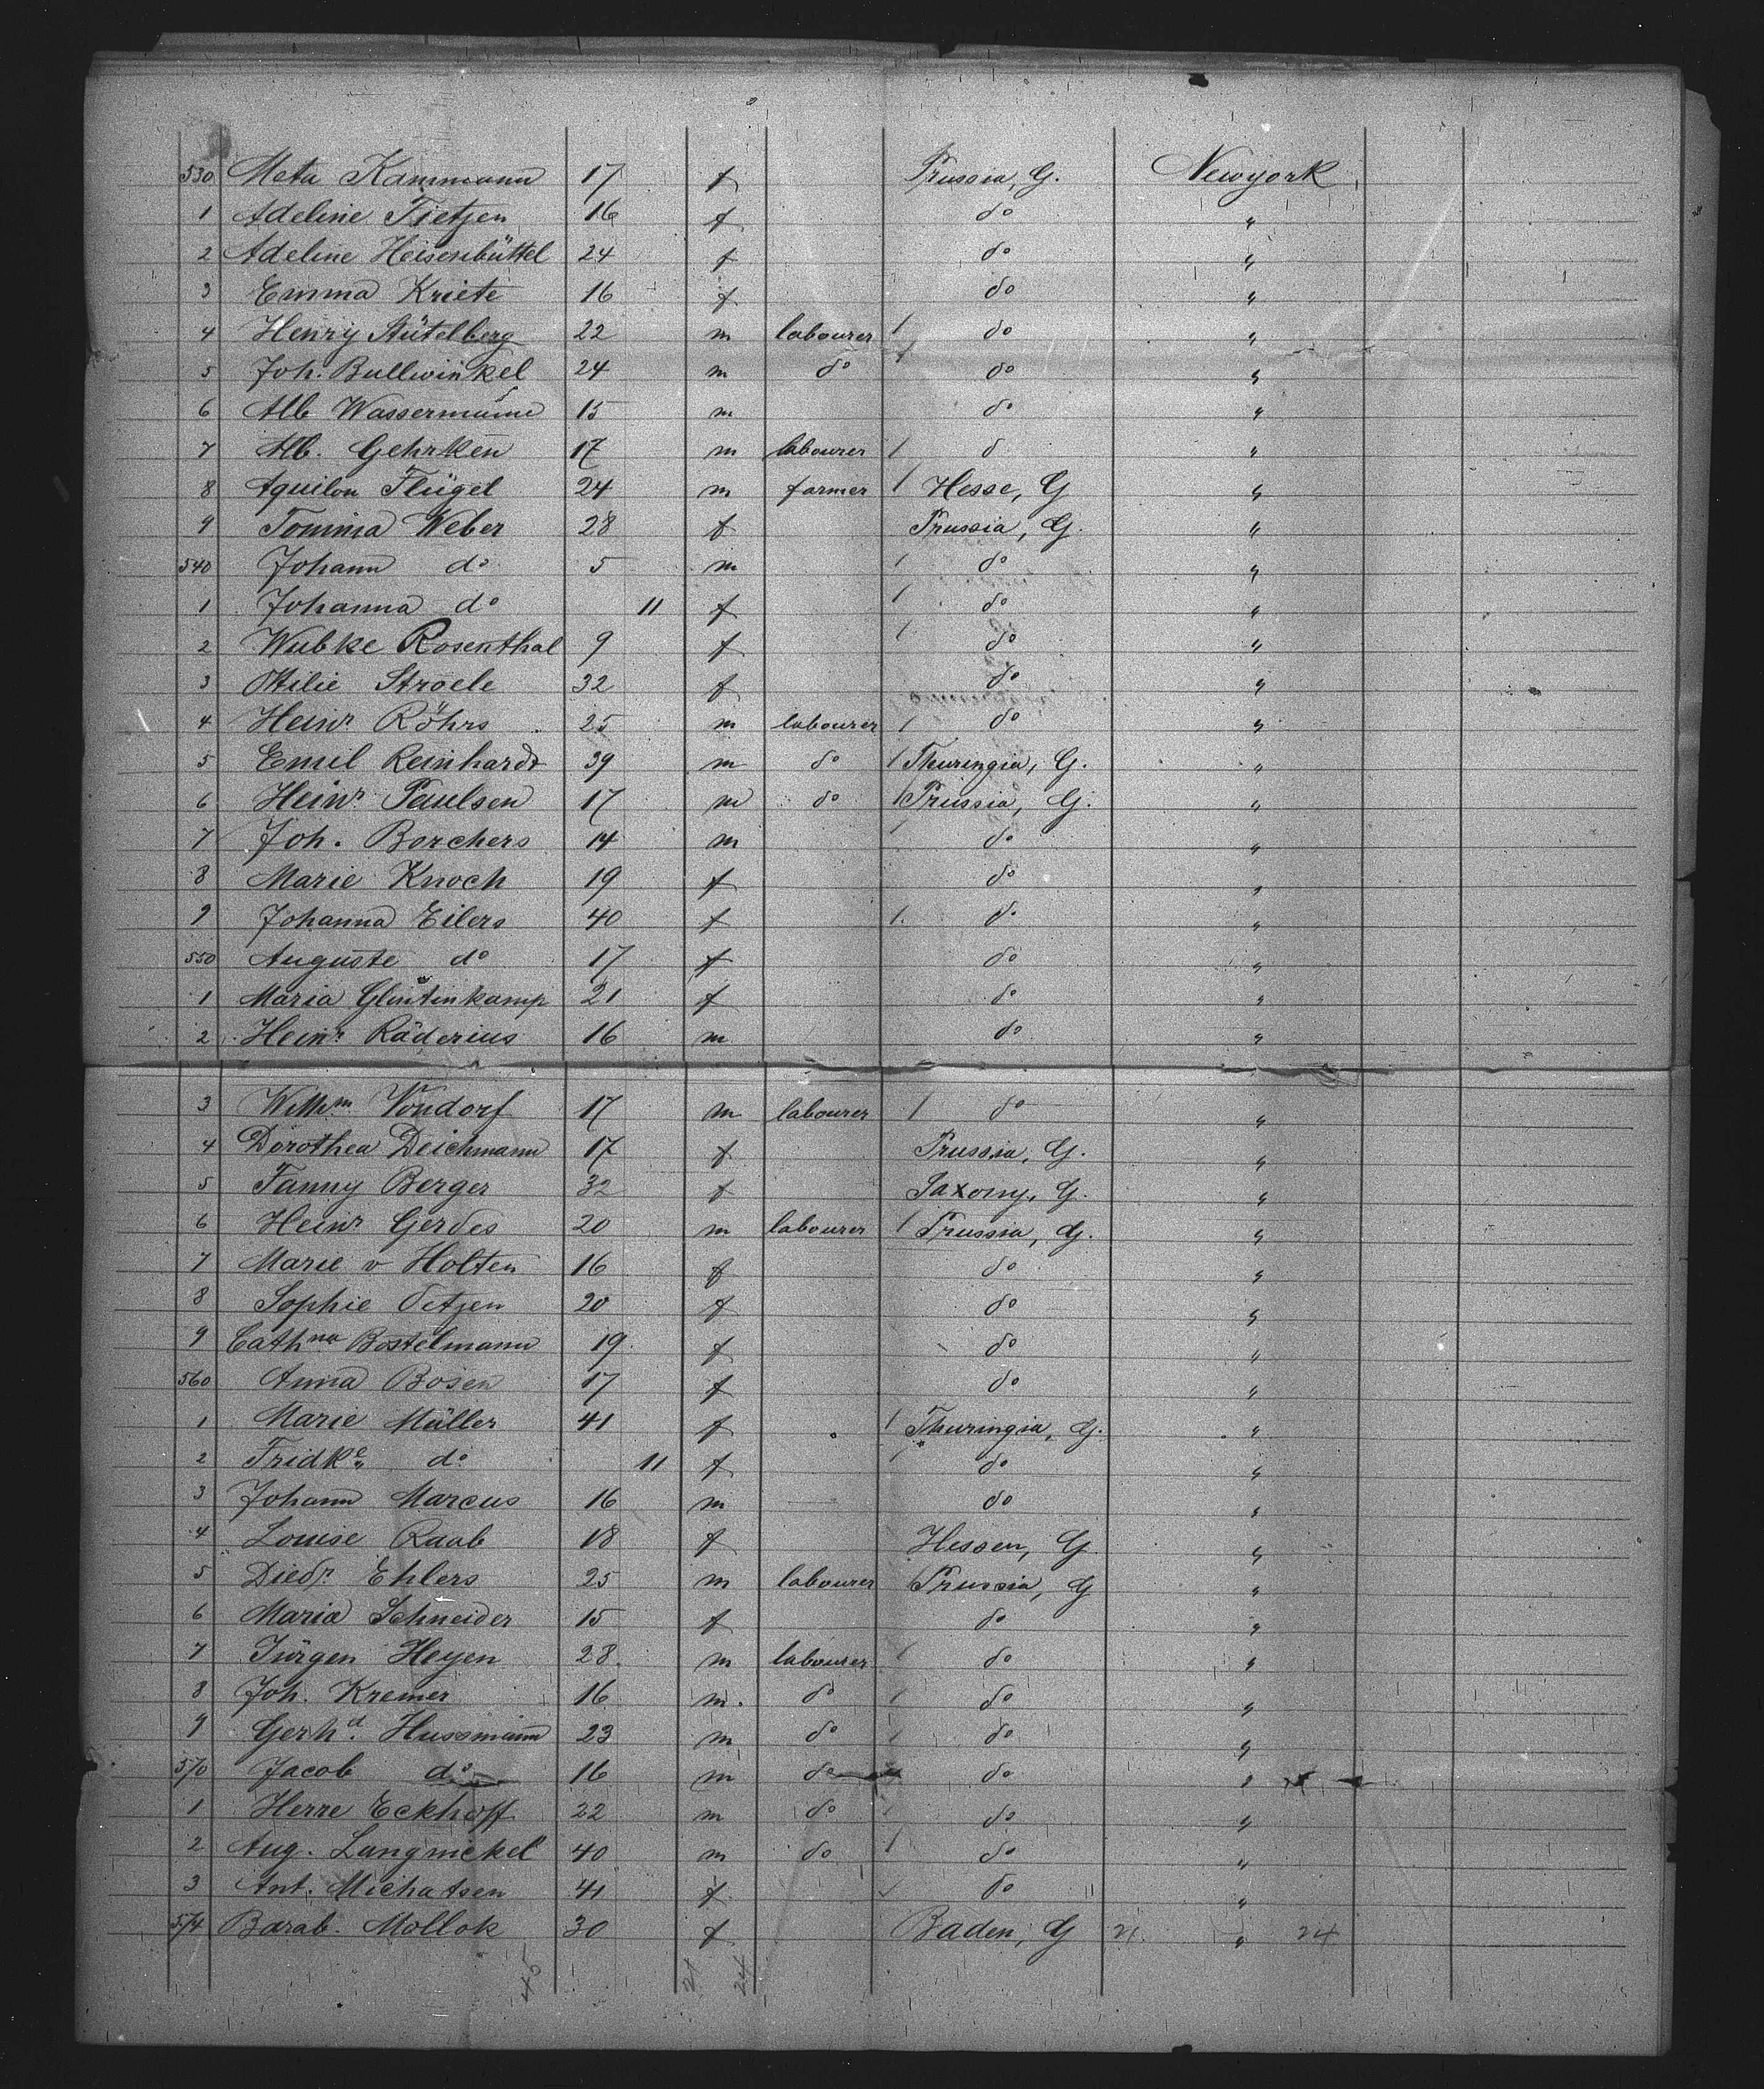 530 Meta Kammann 17 f Prussia, G. Newyork
1 Adeline Tietjen 16 f do "
2 Adeline Heisenbüttel 24 f do "
3 Emma Kriete 16 f do "
4 Henry Stütelberg 22 m labourer 1 do "
5 Joh. Bullwinkel 24 m do do "
6 Alb Wassermann 15 m do "
7 Alb. Gehrken 17 m labourer 1 do "
8 Aquilon Flügel 24 m farmer 1 Hesse, G "
9 Tomma Weber 28 f Prussia, G. "
540 Johann do 5 m 1 do "
1 Johanna do 11 f 1 do "
2 Wubke Rosenthal 9 f 1 do "
3 Ottilie Stroele 32 f do "
4 Heinr Röhrs 25 m labourer 1 do "
5 Emil Reinhardt 39 m do 1 Thuringia, G. "
6 Heinr Paulsen 17 m do 1 Prussia, G. "
7 Joh. Borchers 14 m do "
8 Marie Knoch 19 f do "
9 Johanna Eilers 40 f 1. do "
550 Auguste do 17 f do "
1 Maria 21 f do "
2 Heinr Räderius 16 m do "
3 Wilhm Vondorf 17 m labourer 1 do "
4 Dorothea Deichmann 17 f Prussia, G. "
5 Fanny Berger 32 f Saxony, G. "
6 Heinr Gerdes 20 m labourer 1 Prussia, G. "
7 Marie v Holten 16 f do "
8 Sophie Oetjen 20 f do "
9 Cathna Bostelmann 19. f do "
560 Anna Bosen 17 f do "
1 Marie Müller 41 f 1 Thuringia, G. "
2 Fridke do 11 f do "
3 Johann Marcus 16 m do "
4 Louise Raab 18 f Hessen, G "
5 Diedr. Ehlers 25 m labourer 1 Prussia, G "
6 Maria Schneider 15 f do "
7 Jürgen Heyen 28. m labourer 1 do "
8 Joh. Kremer 16 m. do 1 do "
9 Gerhd. Hussmann 23 m do 1 do "
570 Jacob do 16 m do do "
1 Herre Eckhoff 22 m do do "
2 Aug. Langnickel 40 m do 1 do "
3 Ant. Michatsen 41 f do "
574 Barab. Mollok 30 f Baden, G 21 " 24
45 21 24